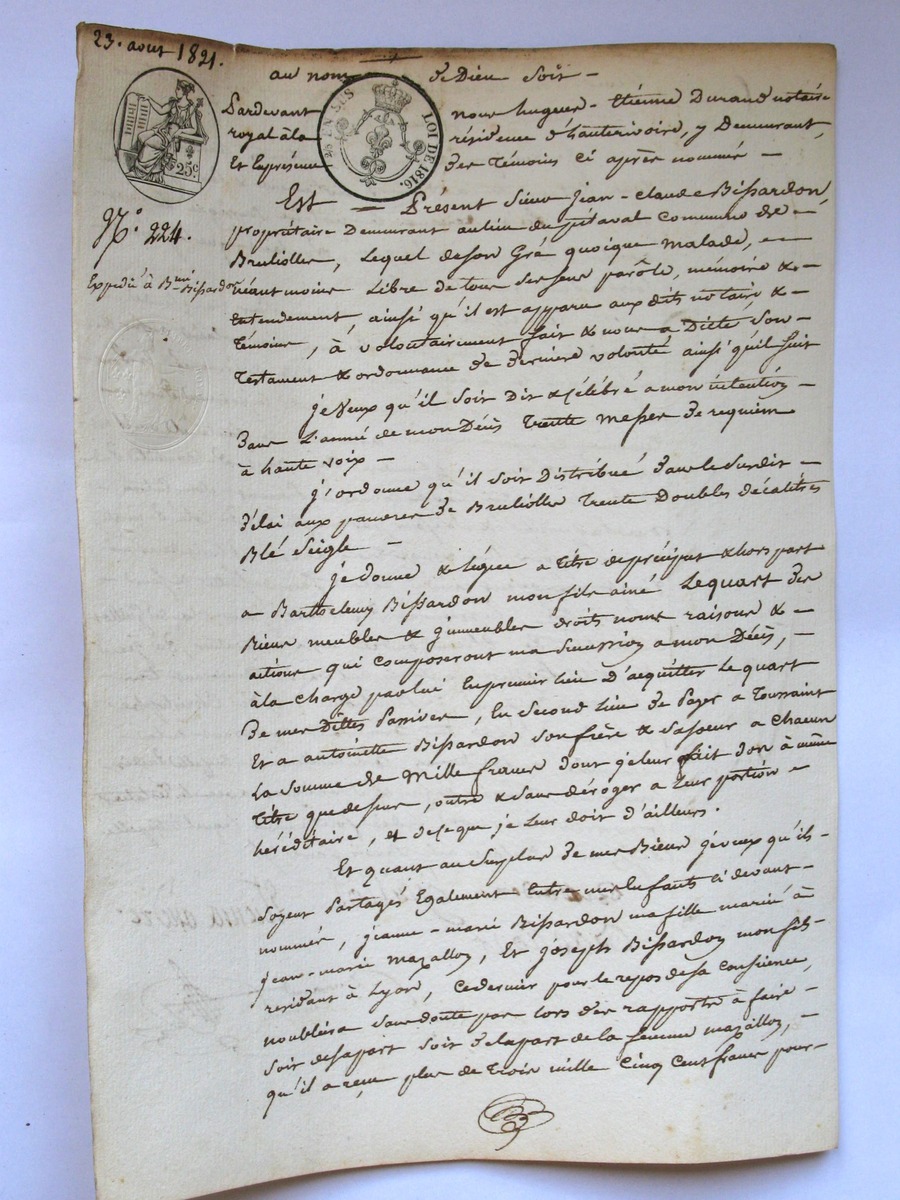 23. aout 1821.
au nom de Dieu soit -
Pardevant nous hugues - Etienne Durand notaire
royal à la résidence d'hauterivoire, y Demeurant,
Et En présence des Témoins Ci après nommés -
25 EN SUS
LOI DE 1816.
25c
N.° 224.
Expedié à Bmi Bissardon
Est = Présent Sieur Jean-Claude Bissardon
propriétaire Demeurant au lieu du pitaval Commune de
Brulliolles, Lequel de son Gré quoique malade,
néantmoins Libre de tous ses sens parôle, mémoire &
Entendement, ainsi qu'il est apparu aux dits notaire &
Témoins, à volontairement fait & nous a Dicté son
Testament & ordonnance de derniere volonté ainsi qu'il suit
je Veux qu'il soit Dit & Célébré a mon intention
Dans L'année de mon Décès Trente messes de requiem
à haute voix -
j'ordonne qu'il soit Distribué dans le susdit
Délai aux pauvres de Brulliolle Trente Doubles décalitres
Blé seigle -
je donne & légue a titre de préciput & hors part
a Barthelemy Bissardon mon fils ainé Le quart des
Biens meubles & jmmeubles droits noms raisons &
actions qui composeront ma succession a mon Décès,
à la charge par lui En premier lieu D'acquitter Le quart
De mes Dêttes Passives, En second Lieu de Payer a Toussaint
Et a antoinette Bissardon son frère & sa soeur a chacun
La somme de mille francs dont je leur fait don à même
titre que dessus, outre & sans déroger a Leur portion
héréditaire, et de ce que je Leur doit d'ailleurs.
Et quant au surplus de mes Biens je veux qu'ils
soyent Partagés Egalement Entre mes Enfants ci devant
nommés, jeanne-marie Bissardon ma fille mariée à
jean-marie mazallon, Et joseph Bissardon mon fils
residant à Lyon, ce dernier pour le repos de sa Consience,
noubliera sans doute pas lors des rapports à faire
soit de sa part soit de la part de la femme mazallon,
qu'il a reçu plus de trois mille Cinq Cent francs pour